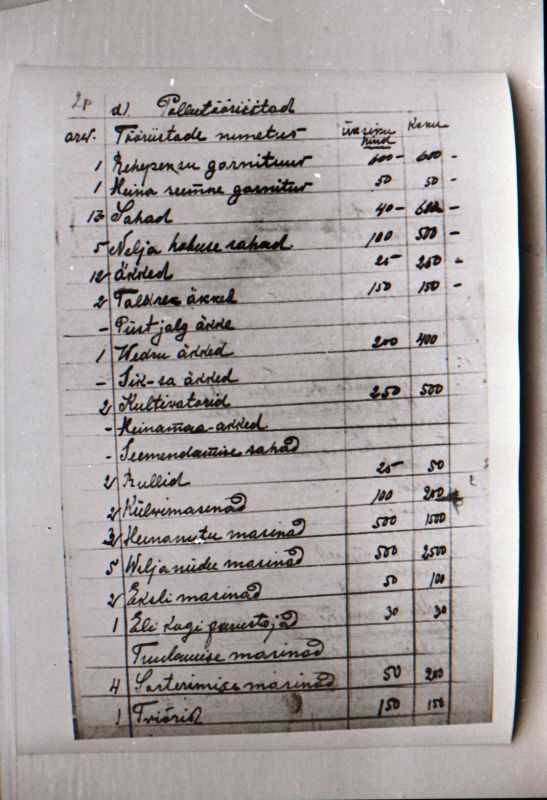 2p d) Põllutööriistad
arv. Tööriistade nimetus üksiku hind Koku
1 Rehepeksu garnituur 600 - 600 -
1 Heina seemne garnitur 50 50 -
13 Sahad 40 -
5 Nelja hobuse sahad 100 500 -
äkked 25 250 -
2 Talbrek äkked 150 150 -
- Püstjalg äkke
1 Wedru äkked 200 400
- Sik-sa äkked
2 Kultivatorid 250 500
- Heinamaa-äkked
- Seemendamise sahad
2 Rullid 25 50
2 Külvimasinad 100 200
3 Heinaniitu masinad 500 1500
5 Wiljaniidu masinad 500 2500
2 Eksli masinad 50 100
1 Eli kogi purustajad 30 30
Tuulamise masinad
4 Sorterimise masinad 50 200
1 Triörid 150 150